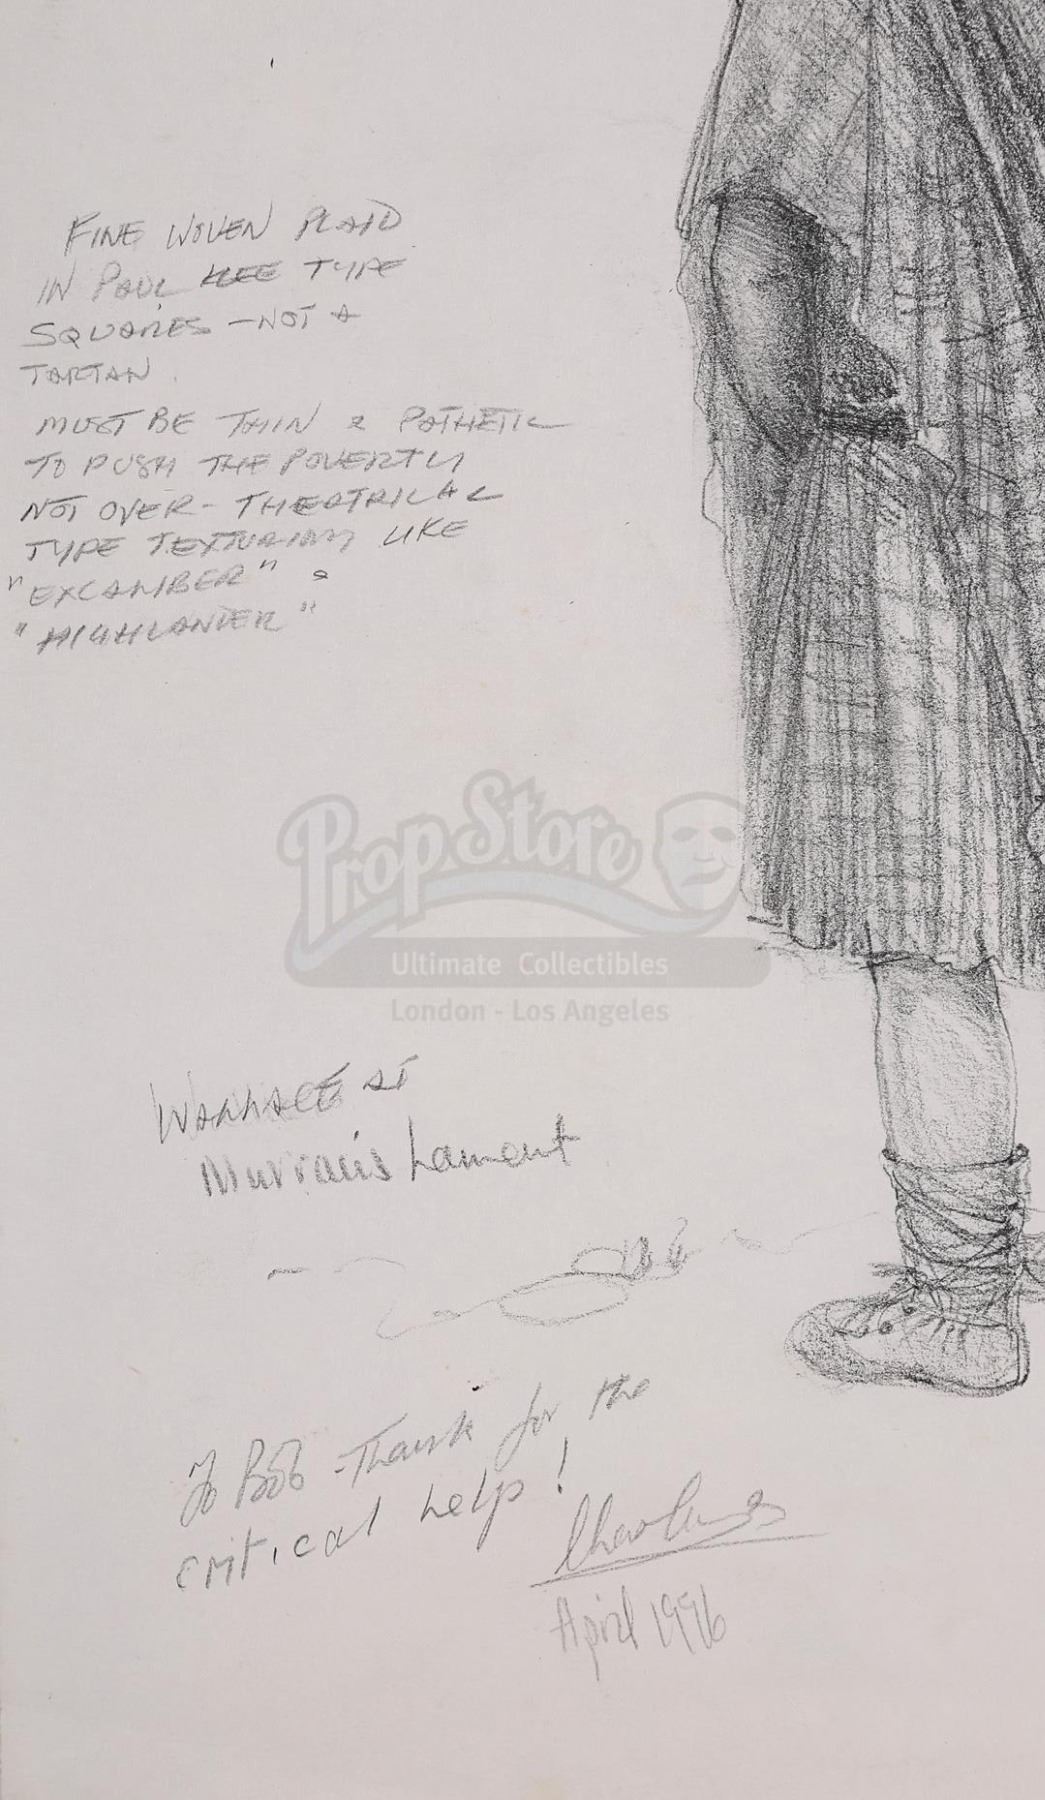 FINE WOVEN PLAID
IN PAUL KLEE TYPE
SQUARES - NOT A
TARTAN.
MUST BE THIN & PATHETIC
TO PUSH THE POVERTY
NOT OVER-THEATRICAL
TYPE TEXTURING LIKE
"EXCALIBER" &
"HIGHLANDER"
PropStore
Ultimate Collectibles
London - Los Angeles
WALLACE AT
Murran's Lament
To Bob - Thank for the
critical help!
April 1996